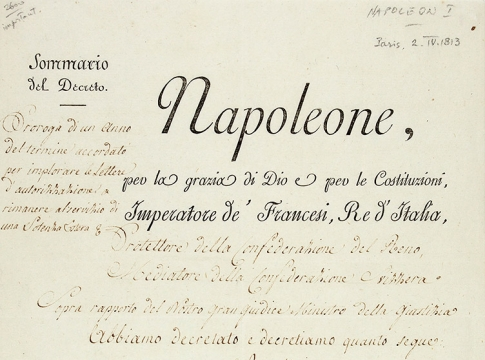 NAPOLEON I
Paris, 2. IV. 1813
Sommario
del Decreto.
Proroga di un Anno
del termine accordato
per implorare le Lettere
d'autorizzazione a
rimanere al servizio di
una Potenza Estera
Napoleone,
per la grazia di Dio e per le Costituzioni,
Imperatore de' Francesi, Re d'Italia,
Protettore della Confederazione del Reno,
Mediatore della Confederazione Svizzera
Sopra rapporto del Nostro Gran Giudice Ministro della Giustizia
Abbiamo decretato e decretiamo quanto segue: